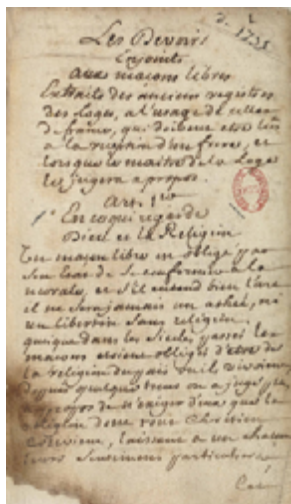 2. L
1735
Les Devoirs
Enjoints
aux maçons libres
Extraits des anciens registres
des Loges, a l'usage de celles
de france, qui doibent etre lus
a la reception d'un frere, et
lorsque le maitre de la Loge
le jugera a propos.
Art. 1er
En ce qui regarde
Dieu et la Religion
Un maçon libre est obligé par
son etat de se conformer a la
morale, et s'il entend bien l'art
il ne sera jamais un athée, ni
un libertin sans religion
quoique dans les siecles passés les
maçons etoient obligés d'etre de
la religion du pais ou ils vivoient
depuis quelque tems on a jugé plus
a propos de n'exiger d'eux que la
religion dont tout chretien
convient, laissant a un chacun
leurs sentimens particuliers